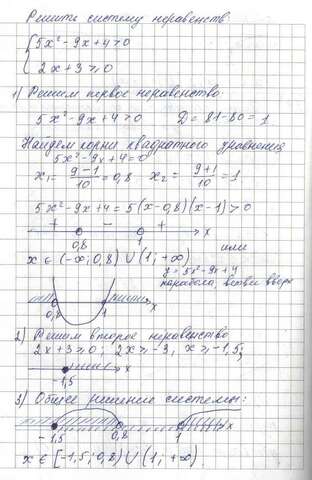 Решите систему неравенств
5x²-9x+4>0
2x+3≥0
1) Решим первое неравенство.
5x²-9x+4>0 D=81-80=1
Найдем корни квадратного уравнения
5x²-9x+4=0
x₁=(9-1)/10=0,8 x₂=(9+1)/10=1
5x²-9x+4=5(x-0,8)(x-1)>0
+ - +
0,8 1 x
x∈(-∞;0,8)∪(1;+∞) или
y=5x²-9x+4
парабола, ветви вверх
0,8 1 x
2) Решим второе неравенство
2x+3≥0; 2x≥-3, x≥-1,5;
-1,5 x
3) Общее решение системы:
-1,5 0,8 1 x
x∈[-1,5;0,8)∪(1;+∞).